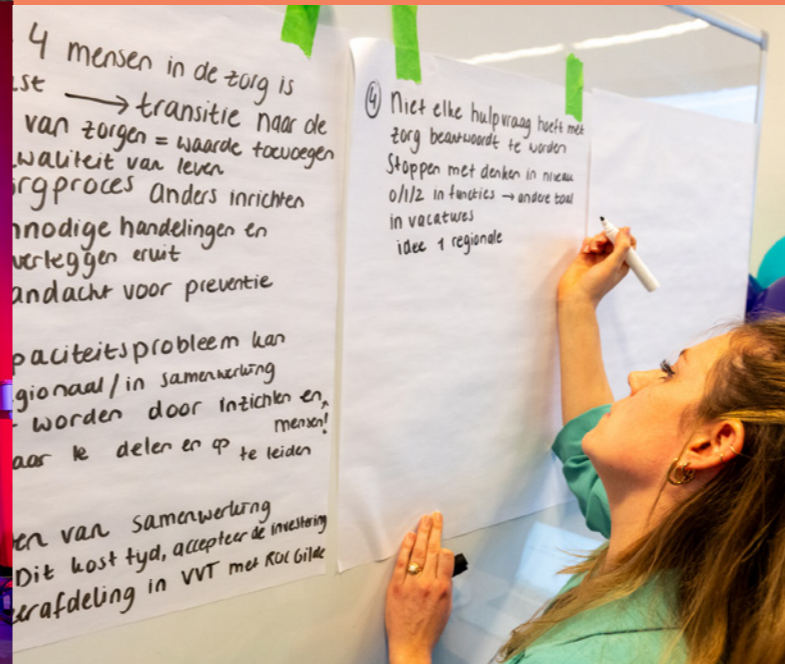 4 mensen in de zorg is
st → transitie naar de
van zorgen = waarde toevoegen
waliteit van leven
rgproces anders inrichten
nnodige handelingen en
verleggen eruit
andacht voor preventie
paciteitsprobleem kan
gionaal/in samenwerking
worden door inzichten en
mensen!
aar te delen en op te leiden
en van samenwerking
Dit kost tyd, accepteer de investering
erafdeling in VVT met ROC Gilde
④ Niet elke hulpvraag hoeft met
zorg beantwoordt te worden
Stoppen met denken in niveau
0/1/2 in functies → andere taal
in vacatures
idee 1 regionale